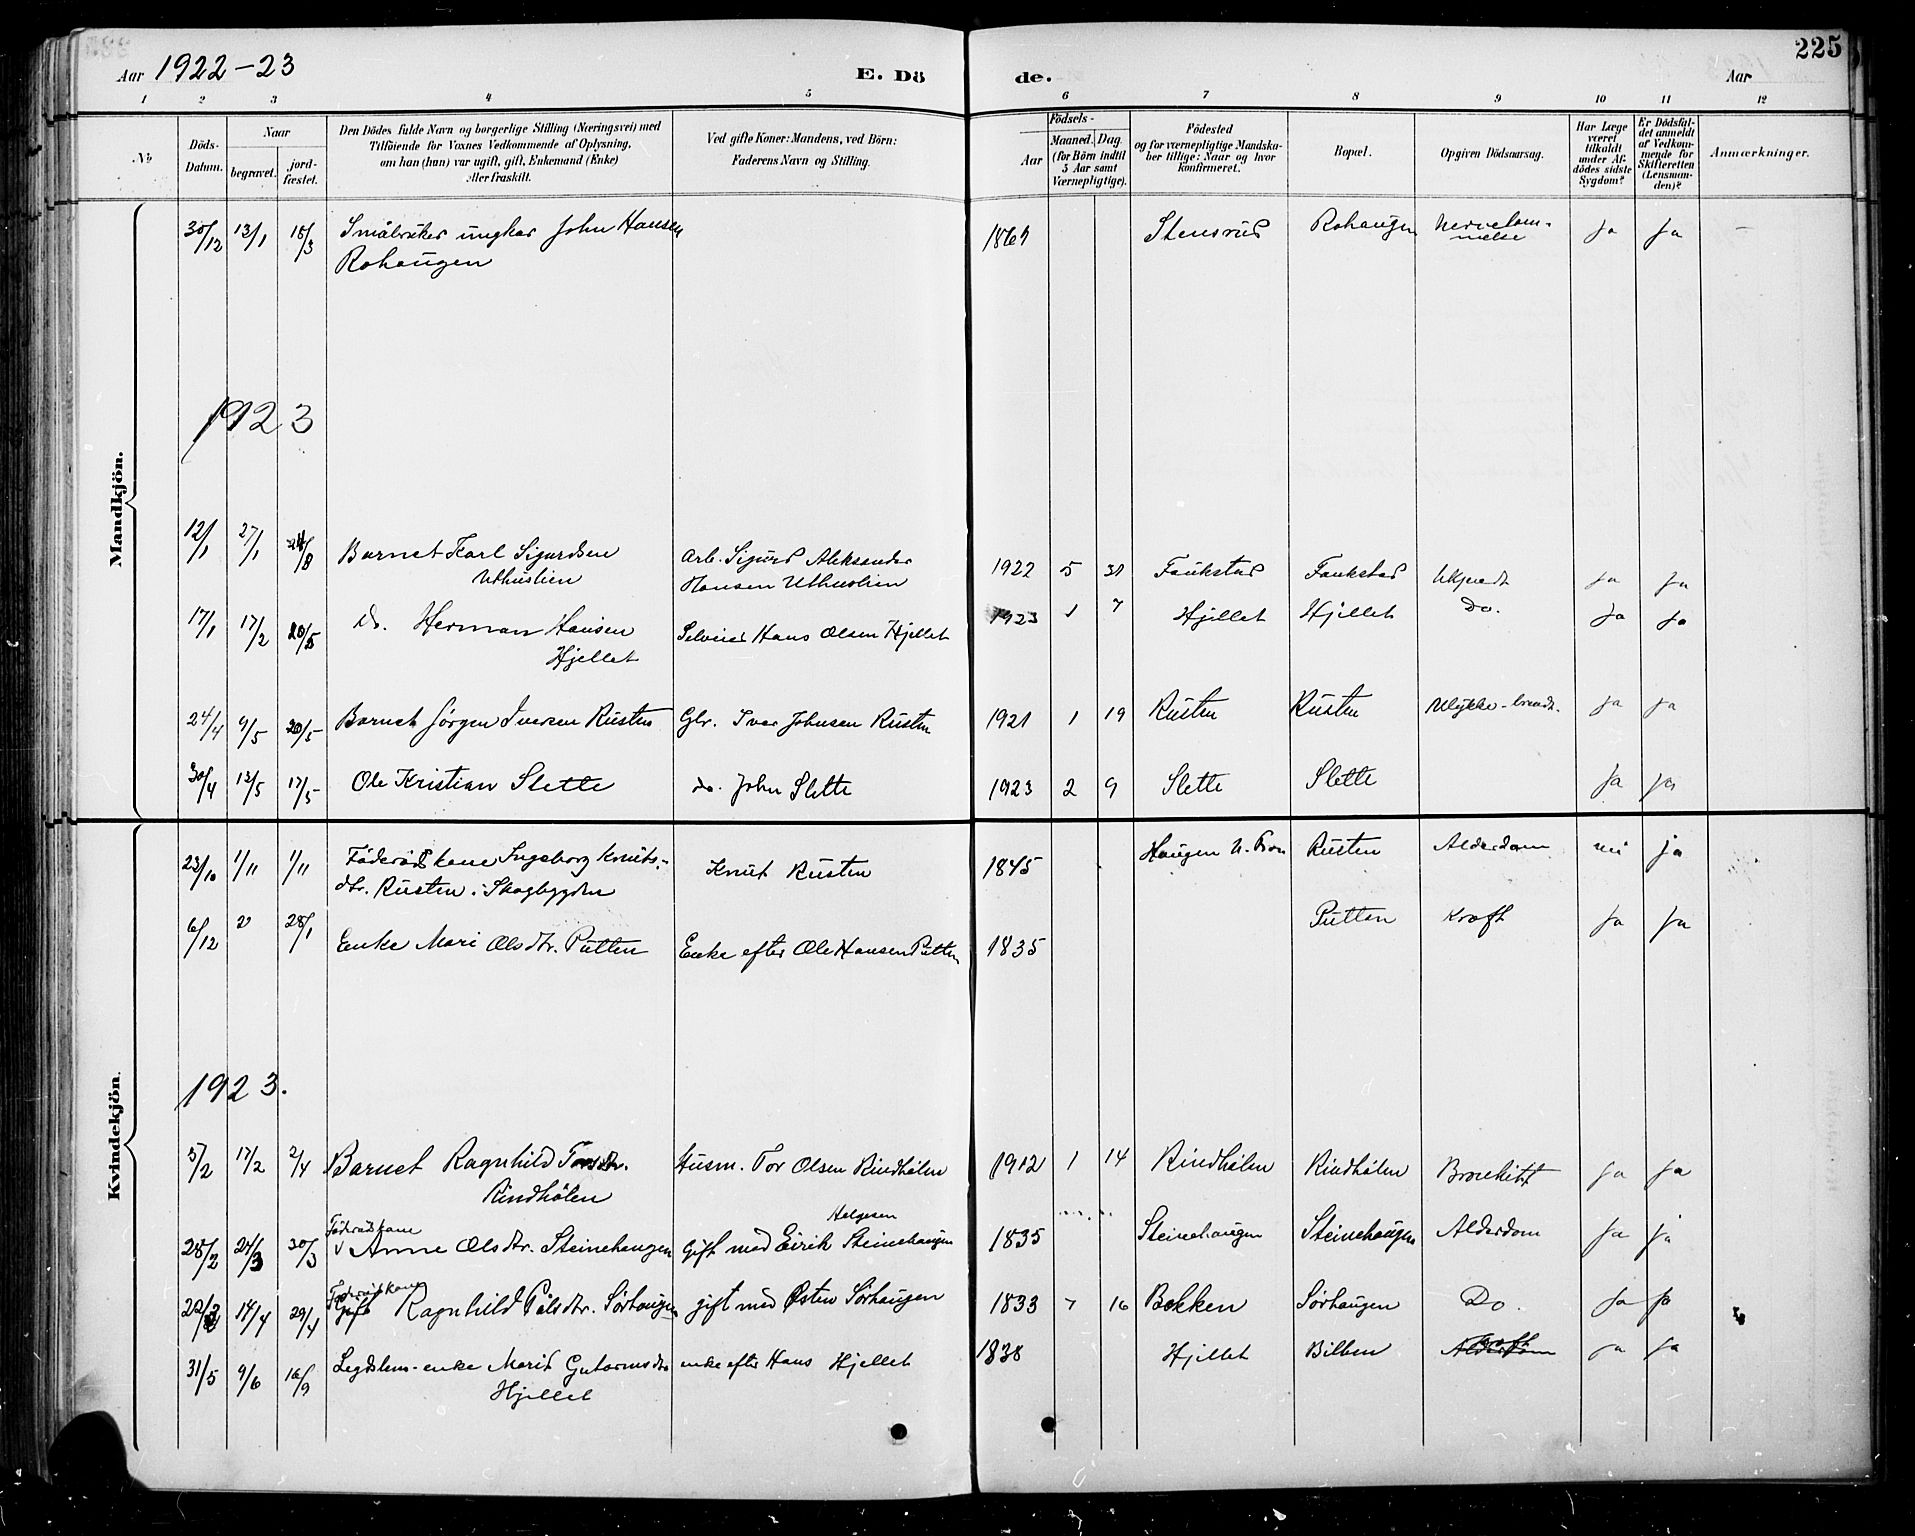 225
Aar 1922-23 E. Döde. Aar
1 2 3 4 5 6 7 8 9 10 11 12
No
Döds-Datum.
Naar
begravet.
jord-fæstet.
Den Dödes fulde Navn og borgerlige Stilling (Næringsvei) med
Tilföiende for Voxnes Vedkommende af Oplysning,
om han (hun) var ugift, gift, Enkemand (Enke)
eller fraskilt.
Ved gifte Koner: Mandens, ved Börn:
Faderens Navn og Stilling.
Födsels-
Aar
Maaned. Dag.
(for Börn indtil
5 Aar samt
Værnepligtige).
Födested
og for værnepligtige Mandska-
ber tillige: Naar og hvor
konfirmeret.
Bopæl.
Opgiven Dödsaarsag.
Har Læge
været
tilkaldt
under Af-
dödes sidste
Sygdom?
Er Dödsfal-
det anmeldt
af Vedkom-
mende for
Skifteretten
(Lensman-
den)?
Anmærkninger.
Mandkjön.
30/12 13/1 18/3 Småbruker ungkar John Hansen Stensrud Rohaugen Nervelam- ja ja –
Rohaugen melse
1923
12/1 27/1 Barnet Karl Sigurdsen Arb. Sigurd Aleksander 1922 5 31 Faukstad Faukstad Ukjendt ja ja
Uthuslien Hansen Uthuslien
17/1 17/2 20/5 Do. Herman Hansen Hans Olsen Hjellet 1923 1 7 Hjellet Hjellet Do. ja ja
Hjellet
24/4 9/5 20/5 Barnet Jørgen Iversen Rusten Gbr. Iver Johnsen Rusten 1921 1 19 Rusten Rusten Ulykke-brændt. ja ja
30/4 13/5 17/5 Ole Kristian Slette do. John Slette 1923 2 9 Slette Slette ja ja
Kvindekjön.
23/10 1/11 1/11 Föderådskone Ingeborg Knuts- Knut Rusten 1845 Haugen N. Fron Rusten Alderdom nei ja
dtr. Rusten i Skogbygden
6/12 28/1 Enke Mari Olsdtr. Putten Enke efter Ole Hansen Putten 1835 Putten Kræft ja ja
1923.
5/2 17/2 2/4 Barnet Ragnhild Torsdtr. Husm. Tor Olsen Rindhölen 1912 1 14 Rindhölen Rindhölen Bronkitt ja ja
Rindhölen
Föderådskone Helgesen
28/2 24/3 30/3 Anne Olsdtr. Steinehaugen Gift med Eirik Steinehaugen 1835 Steinehaugen Steinehaugen Alderdom ja ja
Föderådskone
14/4 29/4 Gift Ragnhild Pålsdtr. Sörhaugen gift med Østen Sörhaugen 1833 7 16 Bakken Sörhaugen Do. ja ja
31/5 9/6 16/9 Legdslem-enke Marit Gutormsdtr. enke efter Hans Hjellet 1838 Hjellet Bilben Alderdom ja ja
Hjellet